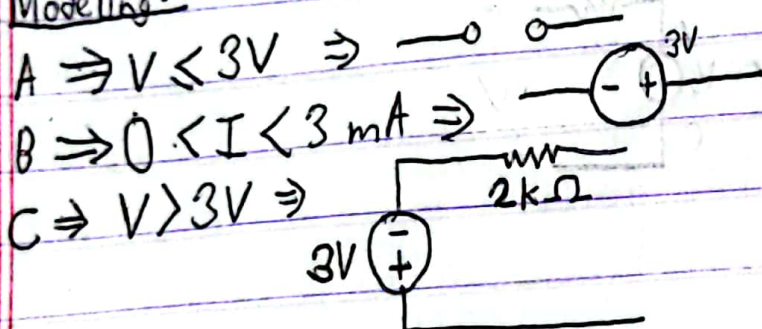 Modeling
A ⇒ V ≤ 3V ⇒ 3V - +
B ⇒ 0 < I < 3 mA ⇒
C ⇒ V > 3V ⇒ 2kΩ
3V - +